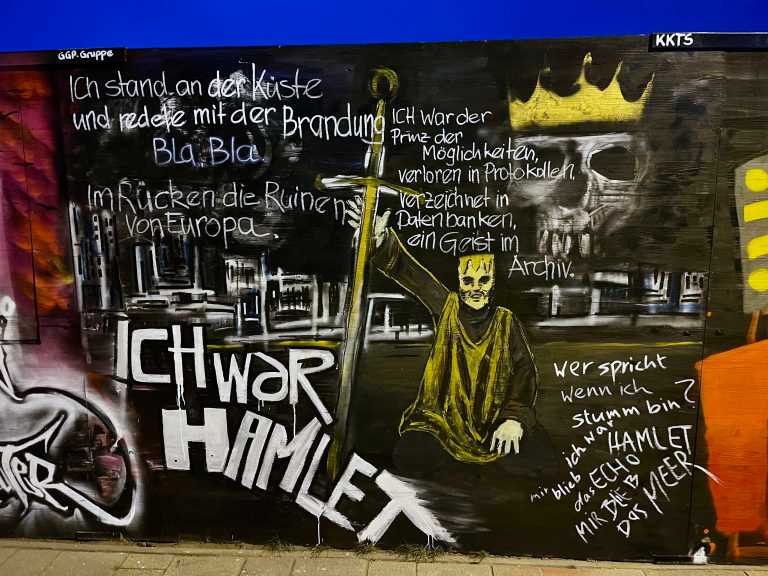 GGP-Gruppe
KKTS
Ich stand an der Küste
und redete mit der Brandung
Bla, Bla.
Im Rücken die Ruinen
von Europa.
ICH WAR
HAMLET
ICH War der
Prinz der
Möglichkeiten,
verloren in Protokollen,
verzeichnet in
Datenbanken,
ein Geist im
Archiv.
wer spricht
wenn ich
stumm bin?
Ich war HAMLET
mir blieb das ECHO
MIR BLIEB
DAS MEER